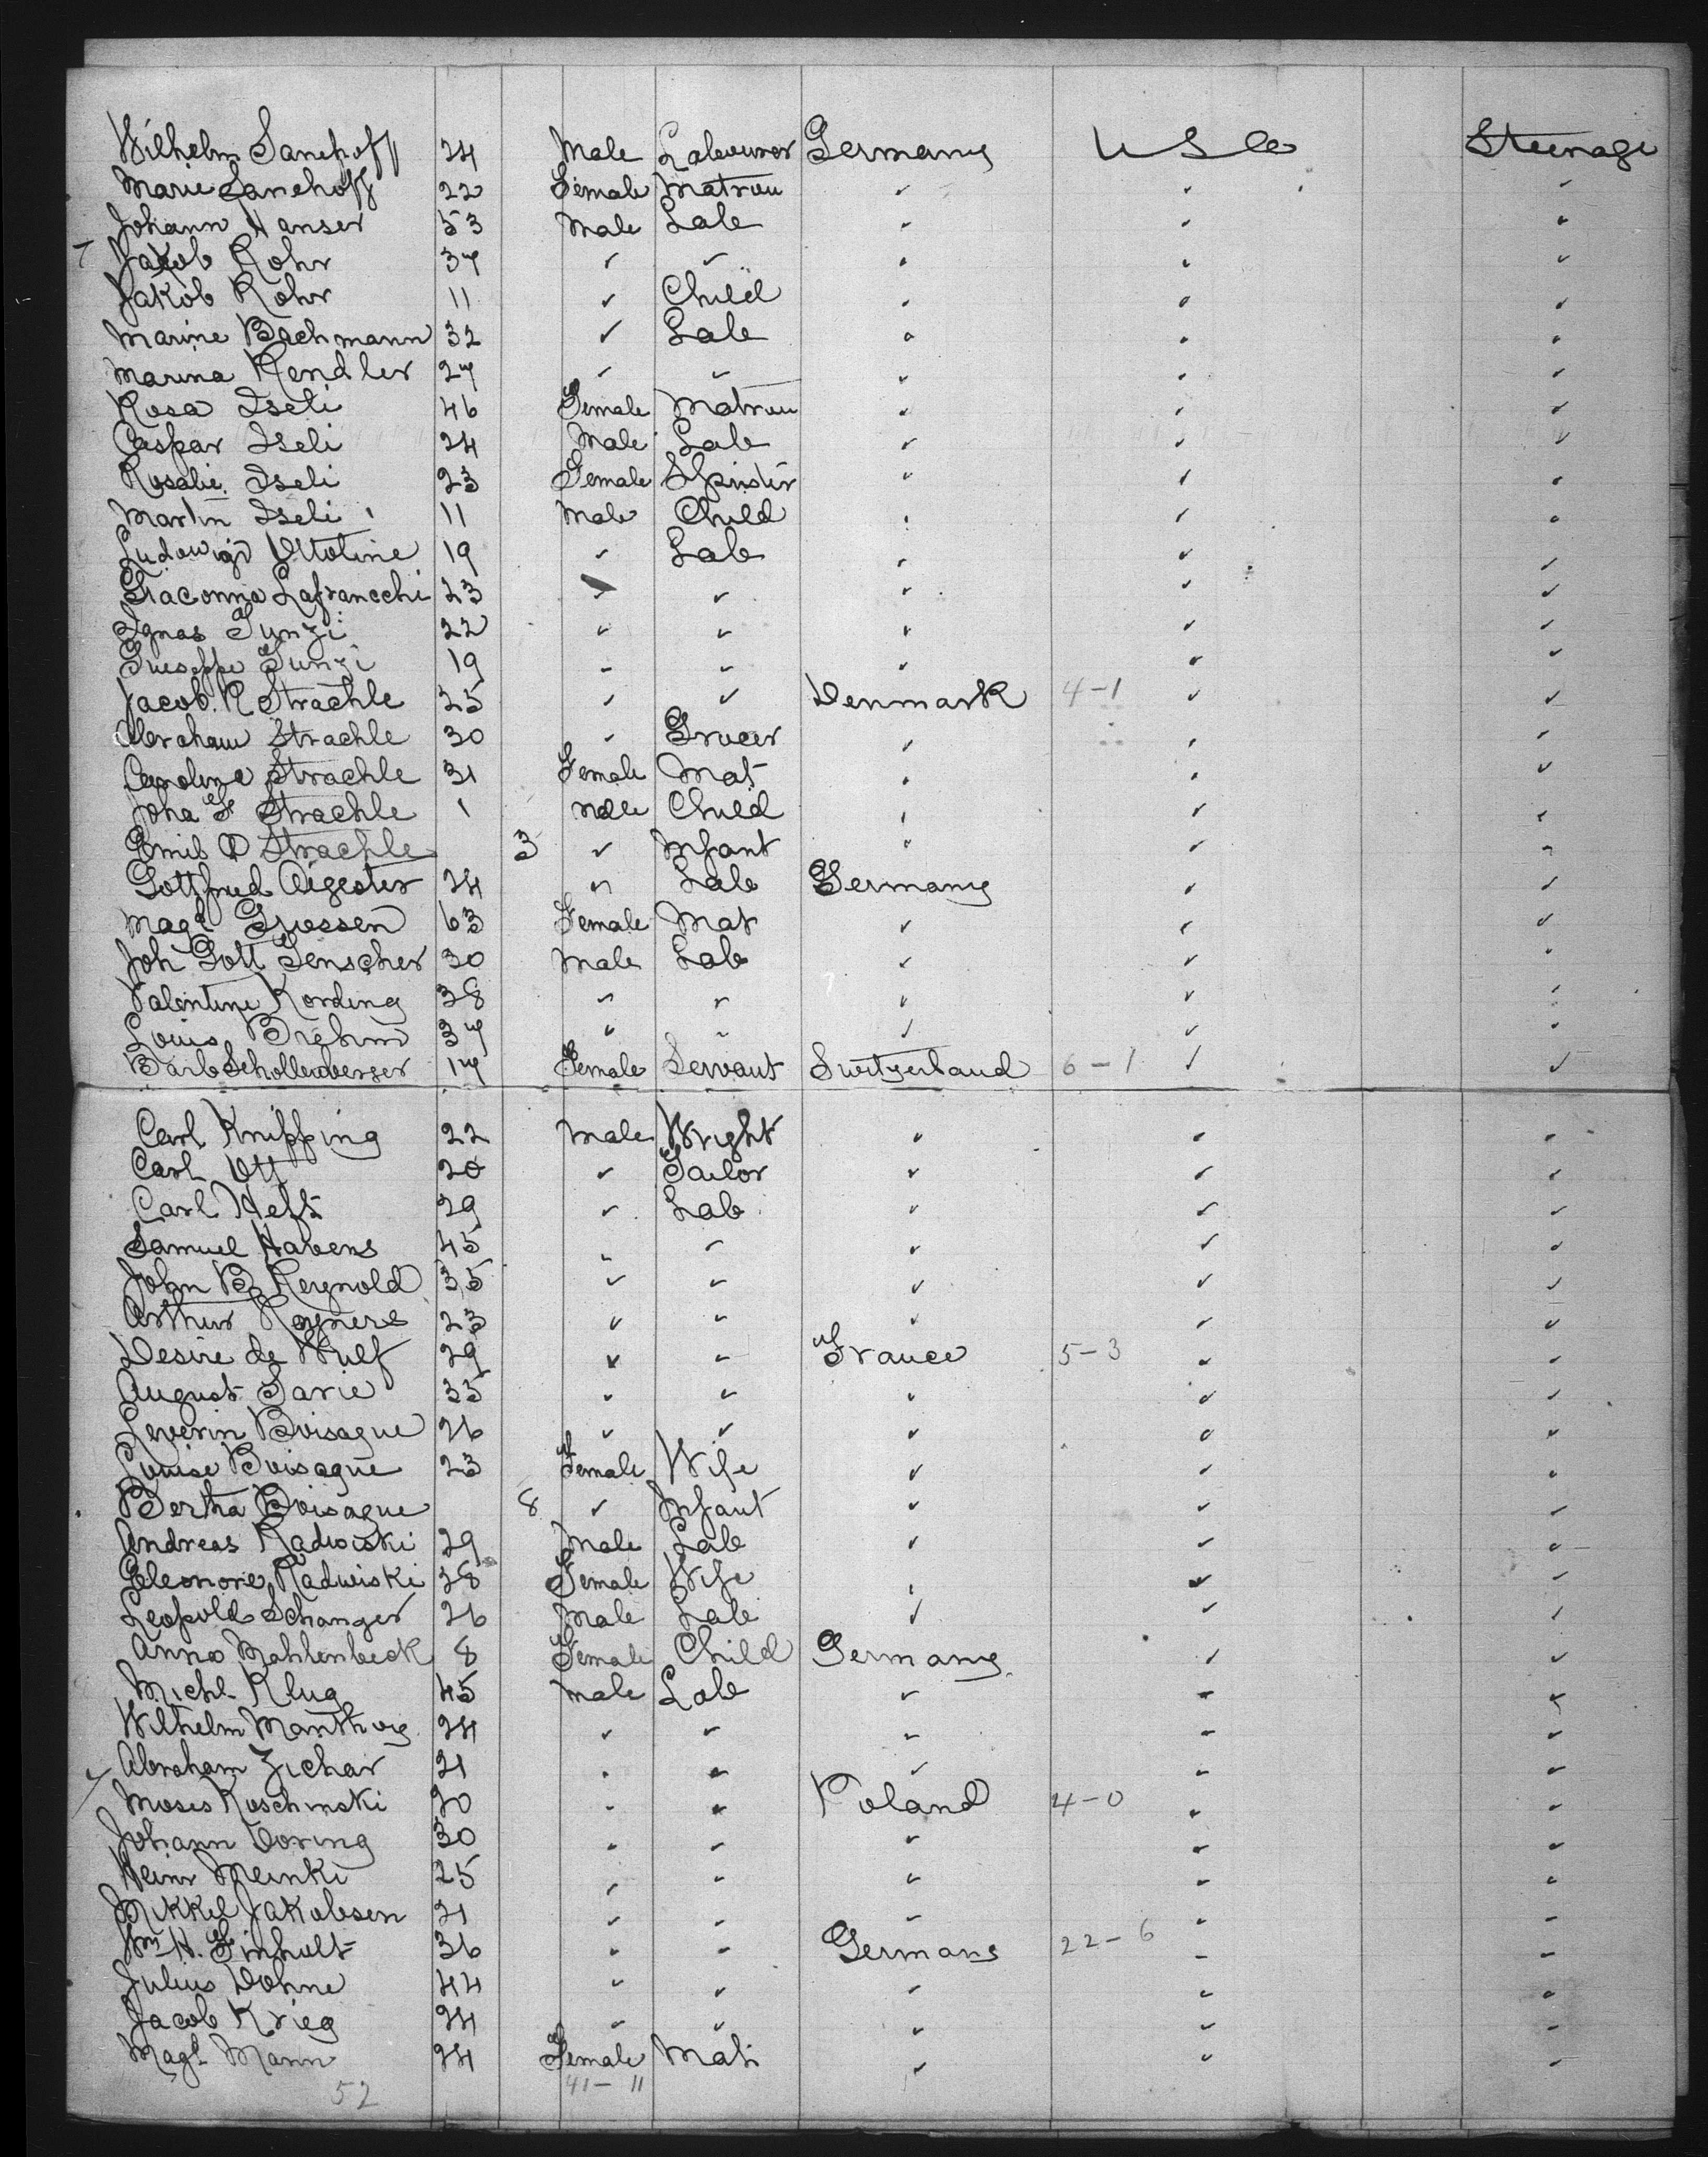 Wilhelm Sanehoff 24 Male Labourer Germany U S A Steerage
Marie Sanehoff 22 Female Matron " " "
Johann Hanser 53 Male Lab " " "
Jakob Rohr 37 " " " " "
Jakob Rohr 11 " Child " " "
Marine Bachmann 32 " Lab " " "
Marina Kendler 27 " " " " "
Rosa Iseli 46 Female Matron " " "
Caspar Iseli 24 Male Lab " " "
Rosalie Iseli 23 Female Spinster " " "
Martin Iseli 11 Male Child " " "
Ludowigo Ottoline 19 " Lab " " "
Giacomma Lafrancchi 23 " " " " "
Ignas Tunzi 22 " " " " "
Guiseppe Tunzi 19 " " " " "
Jacob R Strachle 25 " " Denmark 4-1 " "
Abraham Strachle 30 " Grocer " " "
Caroline Strachle 31 Female Mat " " "
Joha F Strachle 1 Male Child " " "
Emil O Strachle 3 " Infant " " "
Gottfried Aigester 24 " Lab Germany " "
Magd Grossen 63 Female Mat " " "
Joh Gott Genscher 30 Male Lab " " "
Valentine Kording 38 " " " " "
Louis Brehm 37 " " " " "
Barb Schollenberger 17 Female Servant Switzerland 6-1 " "
Carl Knipping 22 Male Wright " " "
Carl Ott 20 " Tailor " " "
Carl Heft 29 " Lab " " "
Samuel Havens 45 " " " " "
John B Reynold 35 " " " " "
Arthur Rayners 23 " " " " "
Desire de Wulf 29 " " France 5-3 " "
August Sarie 35 " " " " "
Severin Boisague 26 " " " " "
Louise Boisague 23 Female Wife " " "
Bertha Boisague 8 " Infant " " "
Andreas Radwiski 29 Male Lab " " "
Eleonore Radwiski 28 Female Wife " " "
Leopold Schanger 26 Male Lab " " "
Anna Mahlenbeck 8 Female Child Germany " "
Michl Klug 45 Male Lab " " "
Wilhelm Manthey 24 " " " " "
Abraham Zichar 21 " " " " "
Moses Koschinski 20 " " Poland 4-0 " "
Johann Doring 30 " " " " "
Heinr Meinki 25 " " " " "
Mikkel Jakobsen 21 " " " " "
Wm H. Finhult 36 " " Germany 22-6 " "
Julius Dohne 44 " " " " "
Jacob Krieg 24 " " " " "
Magt Mann 24 Female Mat " " "
52 41-11